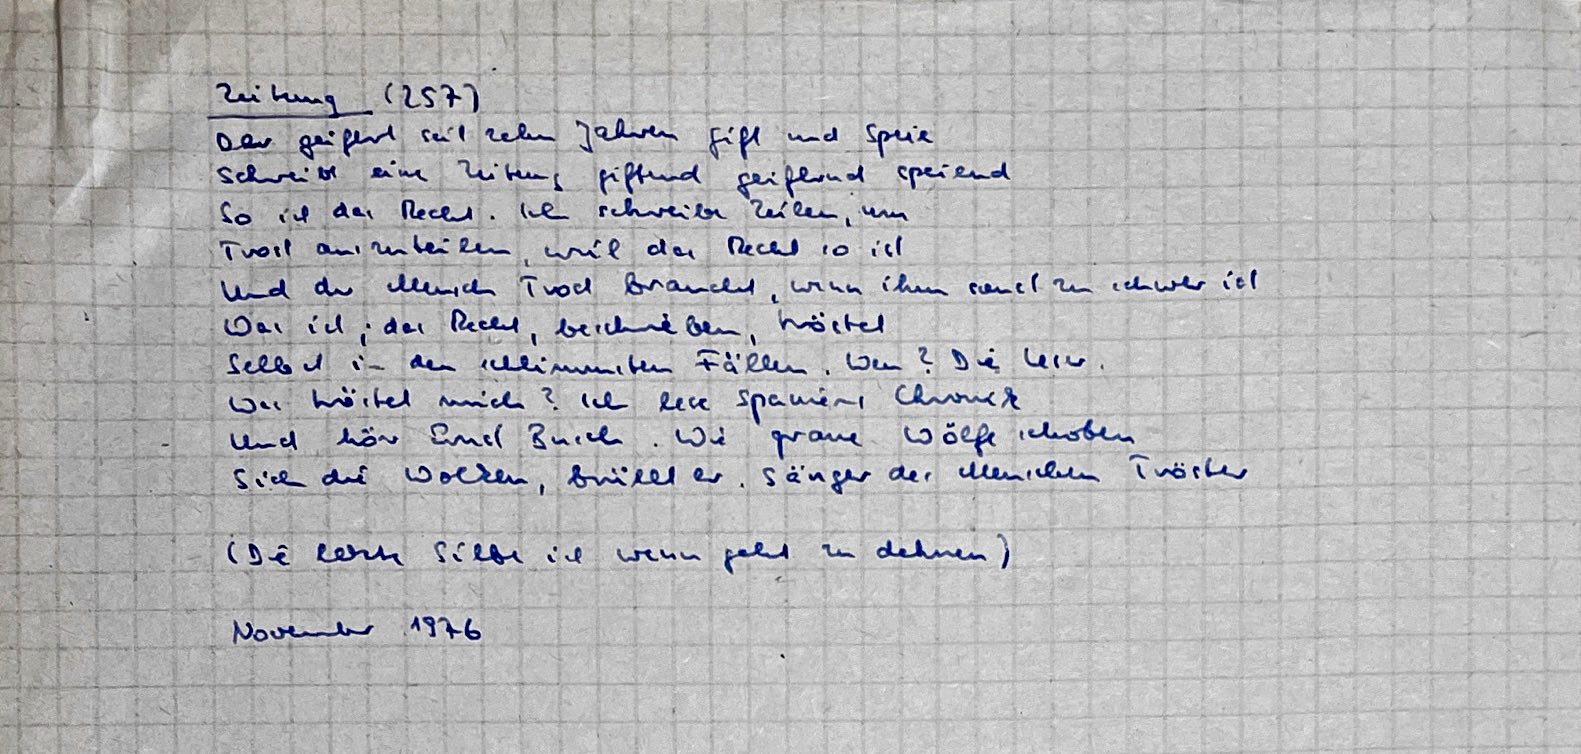 Zeitung (257)
Der geifert seit zehn Jahren Gift und Speie
Schreibt eine Zeitung giftend geifernd speiend
So ist das Recht. Ich schreibe Zeilen, um
Trost auszuteilen, weil das Recht so ist
Und der Mensch Trost braucht, wenn ihm sonst zu schwer ist
Was ist, das Recht, beschrieben, tröstet
Selbst in den schlimmsten Fällen. Wen? Die Leser.
Was tröstet mich? Ich lese Spaniens Chronik
Und hör Ernst Busch. Wie graue Wölfe schoben
Sich die Wolken, brüllt er. Sänger des Menschen Tröster
(Die letzte Silbe ist wenn geht zu dehnen)
November 1976